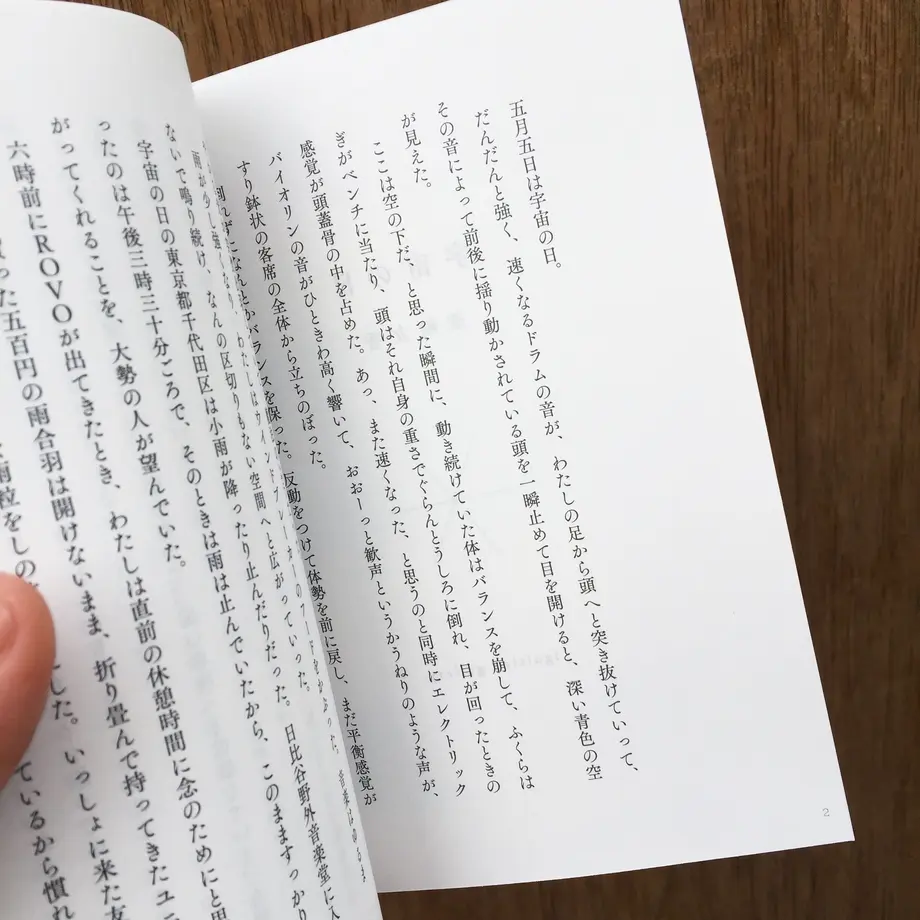 五月五日は宇宙の日。
だんだんと強く、速くなるドラムの音が、わたしの足から頭へと突き抜けていって、
その音によって前後に揺り動かされている頭を一瞬止めて目を開けると、深い青色の空
が見えた。
ここは空の下だ、と思った瞬間に、動き続けていた体はバランスを崩して、ふくらは
ぎがベンチに当たり、頭はそれ自身の重さでぐらんとうしろに倒れ、目が回ったときの
感覚が頭蓋骨の中を占めた。あっ、また速くなった、と思うのと同時にエレクトリック
バイオリンの音がひときわ高く響いて、おおーっと歓声というかうねりのような声が、
すり鉢状の客席の全体から立ちのぼった。
倒れずになんとかバランスを保った。反動をつけて体勢を前に戻し、まだ平衡感覚が
2
雨が少し強くなり、わたしはウインドブレーカーのフードをかぶった。音楽は
ないで鳴り続け、なんの区切りもない空間へと広がっていった。
宇宙の日の東京都千代田区は小雨が降ったり止んだりだった。日比谷野外音楽堂に入
ったのは午後三時三十分ごろで、そのときは雨は止んでいたから、このまますっかり
がってくれることを、大勢の人が望んでいた。
六時前にROVOが出てきたとき、わたしは直前の休憩時間に念のためにと思
った五百円の雨合羽は開けないまま、折り畳んで持ってきたユニ
雨粒をしの した。いっしょに来た友
ているから慣れ